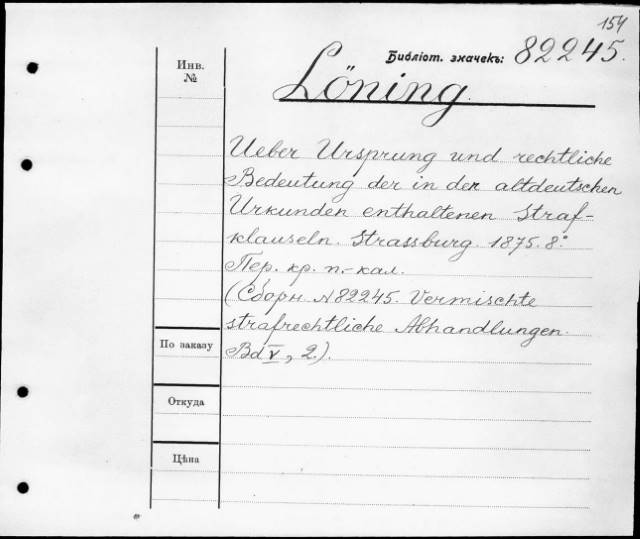 154
Библіот. значекъ: 82245.
Инв.
№
Löning.
Ueber Ursprung und rechtliche
Bedeutung der in den altdeutschen
Urkunden enthaltenen Straf-
klauseln. Strassburg. 1875. 8°.
Пер. кр. п.-кал.
(Сборн. №82245. Vermischte
strafrechtliche Abhandlungen.
Bd V, 2.).
По заказу
Откуда
Цѣна